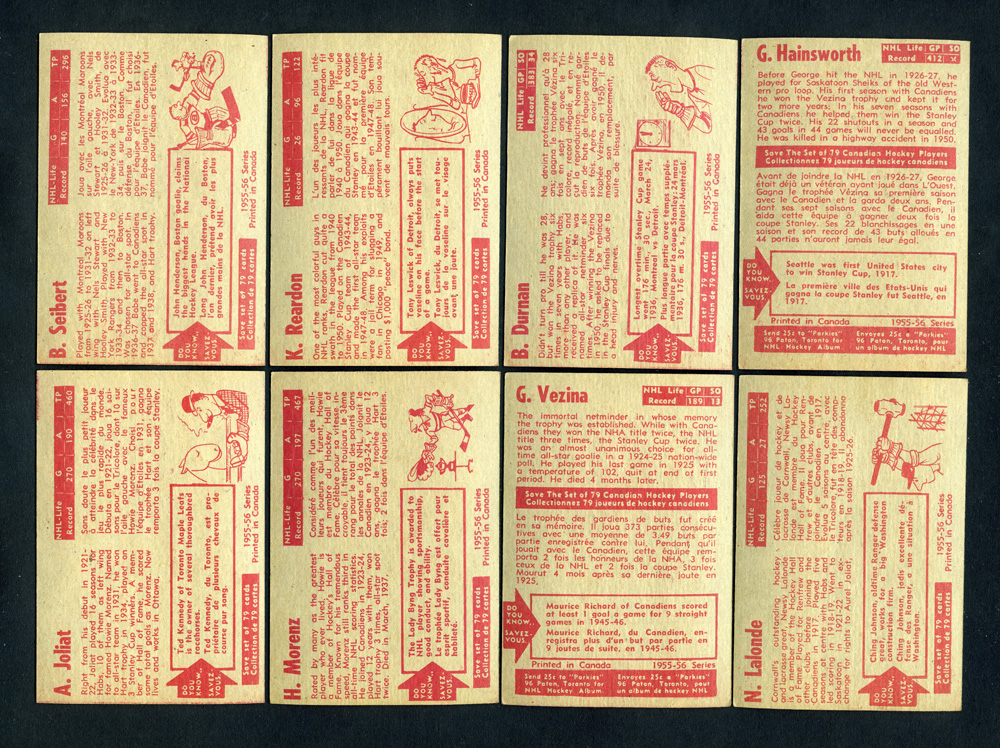 B. Seibert
NHL-Life G A TP
Record 140 156 296
Played with Montreal Maroons
from 1925-26 to 1931-32 on left
wing with Nels Stewart and
Hooley Smith. Played with New
York Rangers from 1932-33 to
1933-34 and then to Boston.
Was converted to defense and
won all-star spot. In
1936-37 Babe went to Canadiens
and copped the all-star in 1936,
1937 and 1938, and Hart trophy.
Joua avec les Montréal Maroons
sur l'aile gauche, avec Nels
Stewart et Hooley Smith, de
1925-26 à 1931-32. Evolua avec
le New-York de 1932-33 à 1933-
34, puis sur le Boston. Comme
défense du Boston, il fut choisi
pour l'équipe d'Etoiles. En 1936-
37, Babe joignit le Canadien, fut
nommé pour l'équipe d'Etoiles.
DO YOU KNOW,
SAVEZ-VOUS,
John Henderson, Boston goalie, claims
the biggest hands in the National
Hockey League.
Long John Henderson, du Boston,
gardien, prétend avoir les plus
grandes mains de la NHL.
Save set of 79 cards
Collection de 79 cartes
1955-56 Series
Printed in Canada
K. Reardon
NHL-Life G A TP
Record 26 96 122
One of the most colorful guys
in the NHL, Ken Reardon fit
swath in the league from 1940
to 1950. Played on the Canadien
Stanley Cup team of 1943-44,
and made the first all-star team
in 1947-48. His greatest exploits
were a fall for slugging a fan
in Chicago in 1949, and
posting $1,000 "peace" bond.
L'un des joueurs les plus inté-
ressants de la NHL, Reardon fit
parler de lui dans la ligue de
1940 à 1950. Joua dans l'équipe
du Canadien qui gagna la coupe
Stanley en 1943-44 et fut nom-
mé pour la première équipe
d'Etoiles en 1947-48. Son rem-
parement bouillant lui joua sou-
vent des tours.
DO YOU KNOW,
SAVEZ-VOUS,
Tony Leswick of Detroit, always puts
vaseline on his face before the start
of a game.
Tony Leswick du Detroit, se met tou-
jours de la vaseline sur le visage
avant une joute.
Save set of 79 cards
Collection de 79 cartes
1955-56 Series
Printed in Canada
B. Durnan
NHL Life GP SO
Record 383 34
Didn't turn pro till he was 28,
but won the Vezina trophy six
times in seven years with Habs,
more than any other player, and
recent record in America. Was
named all-star netminder six
times. After winning the Vezina
in 1950, he asked to be replaced
in the Stanley finals due to
a head injury and nerves.
Ne devint professionnel qu'à 28
ans, mais gagna le trophée Vézina six
fois en sept ans avec le Tri-
colore, record inégalé, et en ré-
cent record d'Amérique. Fut gar-
dien de buts de l'équipe d'Etoiles
six fois. Après avoir gagné le
trophée Vézina, en 1950, il de-
manda à être remplacé, par
suite de blessure.
DO YOU KNOW,
SAVEZ-VOUS,
Longest overtime Stanley Cup game
was 116 min., 30 sec., March 24,
1936, Montreal vs Detroit.
Plus longue partie temps supplé-
mentaire pour coupe Stanley: 24 mars
1936, 176 m. 30 s., Detroit-Montréal.
Save set of 79 cards
Collection de 79 cartes
1955-56 Series
Printed in Canada
G. Hainsworth
NHL Life GP SO
Record 412
Before George hit the NHL in 1926-27, he
played for Saskatoon Sheiks of the old Wes-
tern pro loop. His first season with Canadiens
he won the Vezina trophy and kept it for
two more years. In his seven seasons with
Canadiens he helped them win the Stanley
Cup twice. His 22 shutouts in a season and
43 goals in 44 games will never be equalled.
He was killed in a highway accident in 1950.
Save The Set Of 79 Canadian Hockey Players
Collectionnes 79 joueurs de hockey canadiens
Avant de joindre la NHL en 1926-27, George
était déjà un vétéran ayant joué dans L'Ouest.
Gagna le trophée Vézina sa première saison
avec le Canadien et la garda deux ans. Pen-
dant ses sept saisons avec le Canadien, il
aida cette équipe à gagner deux fois la
coupe Stanley. Ses 22 blanchissages en une
saison et son record de 43 buts alloués en
44 parties n'auront jamais leur égal.
DO YOU KNOW,
SAVEZ-VOUS,
Seattle was first United States city
to win Stanley Cup, 1917.
La première ville des Etats-Unis qui
gagna la coupe Stanley fut Seattle, en
1917.
Printed in Canada 1955-56 Series
Send 25c to "Parkies"
96 Paton, Toronto for
NHL Hockey Album
Envoyez 25c à "Parkies"
96 Paton, Toronto, pour
un album de hockey NHL
A. Joliat
NHL-Life G A TP
Record 270 190 460
Right from his debut in 1921-
22, Joliat played 16 seasons for
Habs, 13 of them as left wing
for famed Howie Morenz. Named
to all-star team in 1931, he won
Hart trophy in 1934, played on
3 Stanley Cup teams. A member
of hockey's Hall of Fame, he scored
same total goals as Morenz. Now
lives and works in Ottawa.
Sans doute le plus petit joueur
à atteindre la célébrité dans le
sport le plus rapide du monde.
Débuta en 1921-22, joua 16 sai-
sons pour le Tricolore, dont 13 sur
l'aile gauche avec le fameux
Howie Morenz. Choisi pour
l'équipe d'Etoiles en 1931, gagna
le trophée Hart et son équipe
remporta 3 fois la coupe Stanley.
DO YOU KNOW,
SAVEZ-VOUS,
Ted Kennedy of Toronto Maple Leafs
is the owner of several thoroughbred
race horses.
Ted Kennedy, du Toronto, est pro-
priétaire de plusieurs chevaux de
course pur sang.
Save set of 79 cards
Collection de 79 cartes
1955-56 Series
Printed in Canada
H. Morenz
NHL-Life G A TP
Record 270 197 467
Rated by many as the greatest
player who ever lived, Howie
is a member of Hockey's Hall of
Fame. Known for his tremendous
speed, Morenz still ranks third in
all-time NHL scoring statistics.
He joined Canadiens in 1923-24,
played 12 years with team, won
Hart trophy 3 times, all-star spot
twice. Died in March, 1937.
Considéré comme l'un des meil-
leurs joueurs qui furent, Howie
est membre du Hockey Hall of
Fame. Reconnu pour sa vitesse in-
croyable, il tient toujours le 3ème
rang pour le total des points dans
les annales de la NHL. Joignit le
Canadien en 1923-24, joua 12
ans, gagna le trophée Hart 3
fois; 2 fois dans l'équipe d'Etoiles.
DO YOU KNOW,
SAVEZ-VOUS,
The Lady Byng Trophy is awarded to
NHL player showing sportsmanship,
good conduct, and ability.
Le trophée Lady Byng est offert pour
esprit sportif, bonne conduite avec
habileté.
Save set of 79 cards
Collection de 79 cartes
1955-56 Series
Printed in Canada
G. Vezina
NHL Life GP SO
Record 189 13
The immortal netminder in whose memory
the trophy was established. While with Cana-
diens they won the NHA title twice, the NHL
title three times, the Stanley Cup twice. He
was an almost unanimous choice for all-
time all-star goalie in a 1924-25 nation-wide
poll. He played his last game in 1925 with
a temperature of 102, out at end of first
period. He died 4 months later.
Save The Set Of 79 Canadian Hockey Players
Collectionnes 79 joueurs de hockey canadiens
Le trophée des gardiens de buts fut créé
en sa mémoire. Il joua 373 parties consé-
cutives avec une moyenne de 3.49 buts par
partie enregistrés contre lui. Pendant qu'il
jouait avec le Canadien, cette équipe rem-
porta 2 fois les honneurs de la NHA, 3 fois
ceux de la NHL et 2 fois la coupe Stanley.
Mourut 4 mois après sa dernière joute en
1925.
DO YOU KNOW,
SAVEZ-VOUS,
Maurice Richard of Canadiens scored
at least 1 goal a game for 9 straight
games in 1945-46.
Maurice Richard, du Canadien, en-
registra plus d'un but par partie en
9 joutes de suite, en 1945-46.
Printed in Canada 1955-56 Series
Send 25c to "Parkies"
96 Paton, Toronto for
NHL Hockey Album
Envoyes 25c a "Parkies"
96 Paton, Toronto, pour
un album de hockey NHL
N. Lalonde
NHL-Life G A TP
Record 125 27 252
Cornwall's outstanding hockey
and lacrosse player, Newsy Lalonde
is a member of the Hockey Hall
of Fame. Played for Renfrew and
other clubs before joining the
Canadiens in 1917. Played five
seasons at centre with Habs and
led scoring in 1918-19. Went to
Saskatoon in 1921-22 in ex-
change for rights to Aurel Joliat.
Célèbre joueur de hockey et de
lacrosse de Cornwall, Newsy La-
londe est membre du Hockey
Hall of Fame. Il joua pour Ren-
frew et d'autres clubs avant de
se joindre le Canadien en 1917.
Evolua 5 saisons au centre avec
le Tricolore, fut en tête des comp-
teurs en 1918-19. Abandonna
après la saison 1925-26.
DO YOU KNOW,
SAVEZ-VOUS,
Ching Johnson, oldtime Ranger defense
great, works for a Washington
construction firm.
Ching Johnson, jadis excellente dé-
fense des Ranger a une situation à
Washington
Save set of 79 cards
Collection de 79 cartes
1955-56 Series
Printed in Canada